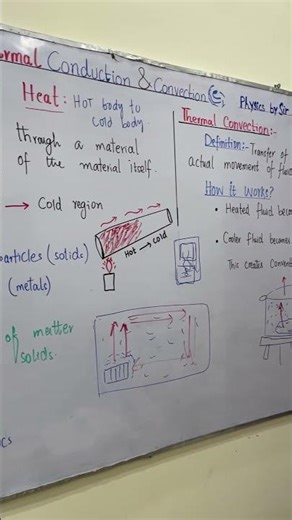 rmal Conduction & Convection
Physics by Sir
Heat: Hot body to
cold body.
through a material
of the material itself.
→ Cold region
particles (solids)
(metals)
Hot → Cold
of matter
solids.
cs
Thermal Convection:-
Definition:- Transfer of
actual movement of fluid
How It Works?
• Heated fluid becom
• Cooler fluid becomes
This creates Convent